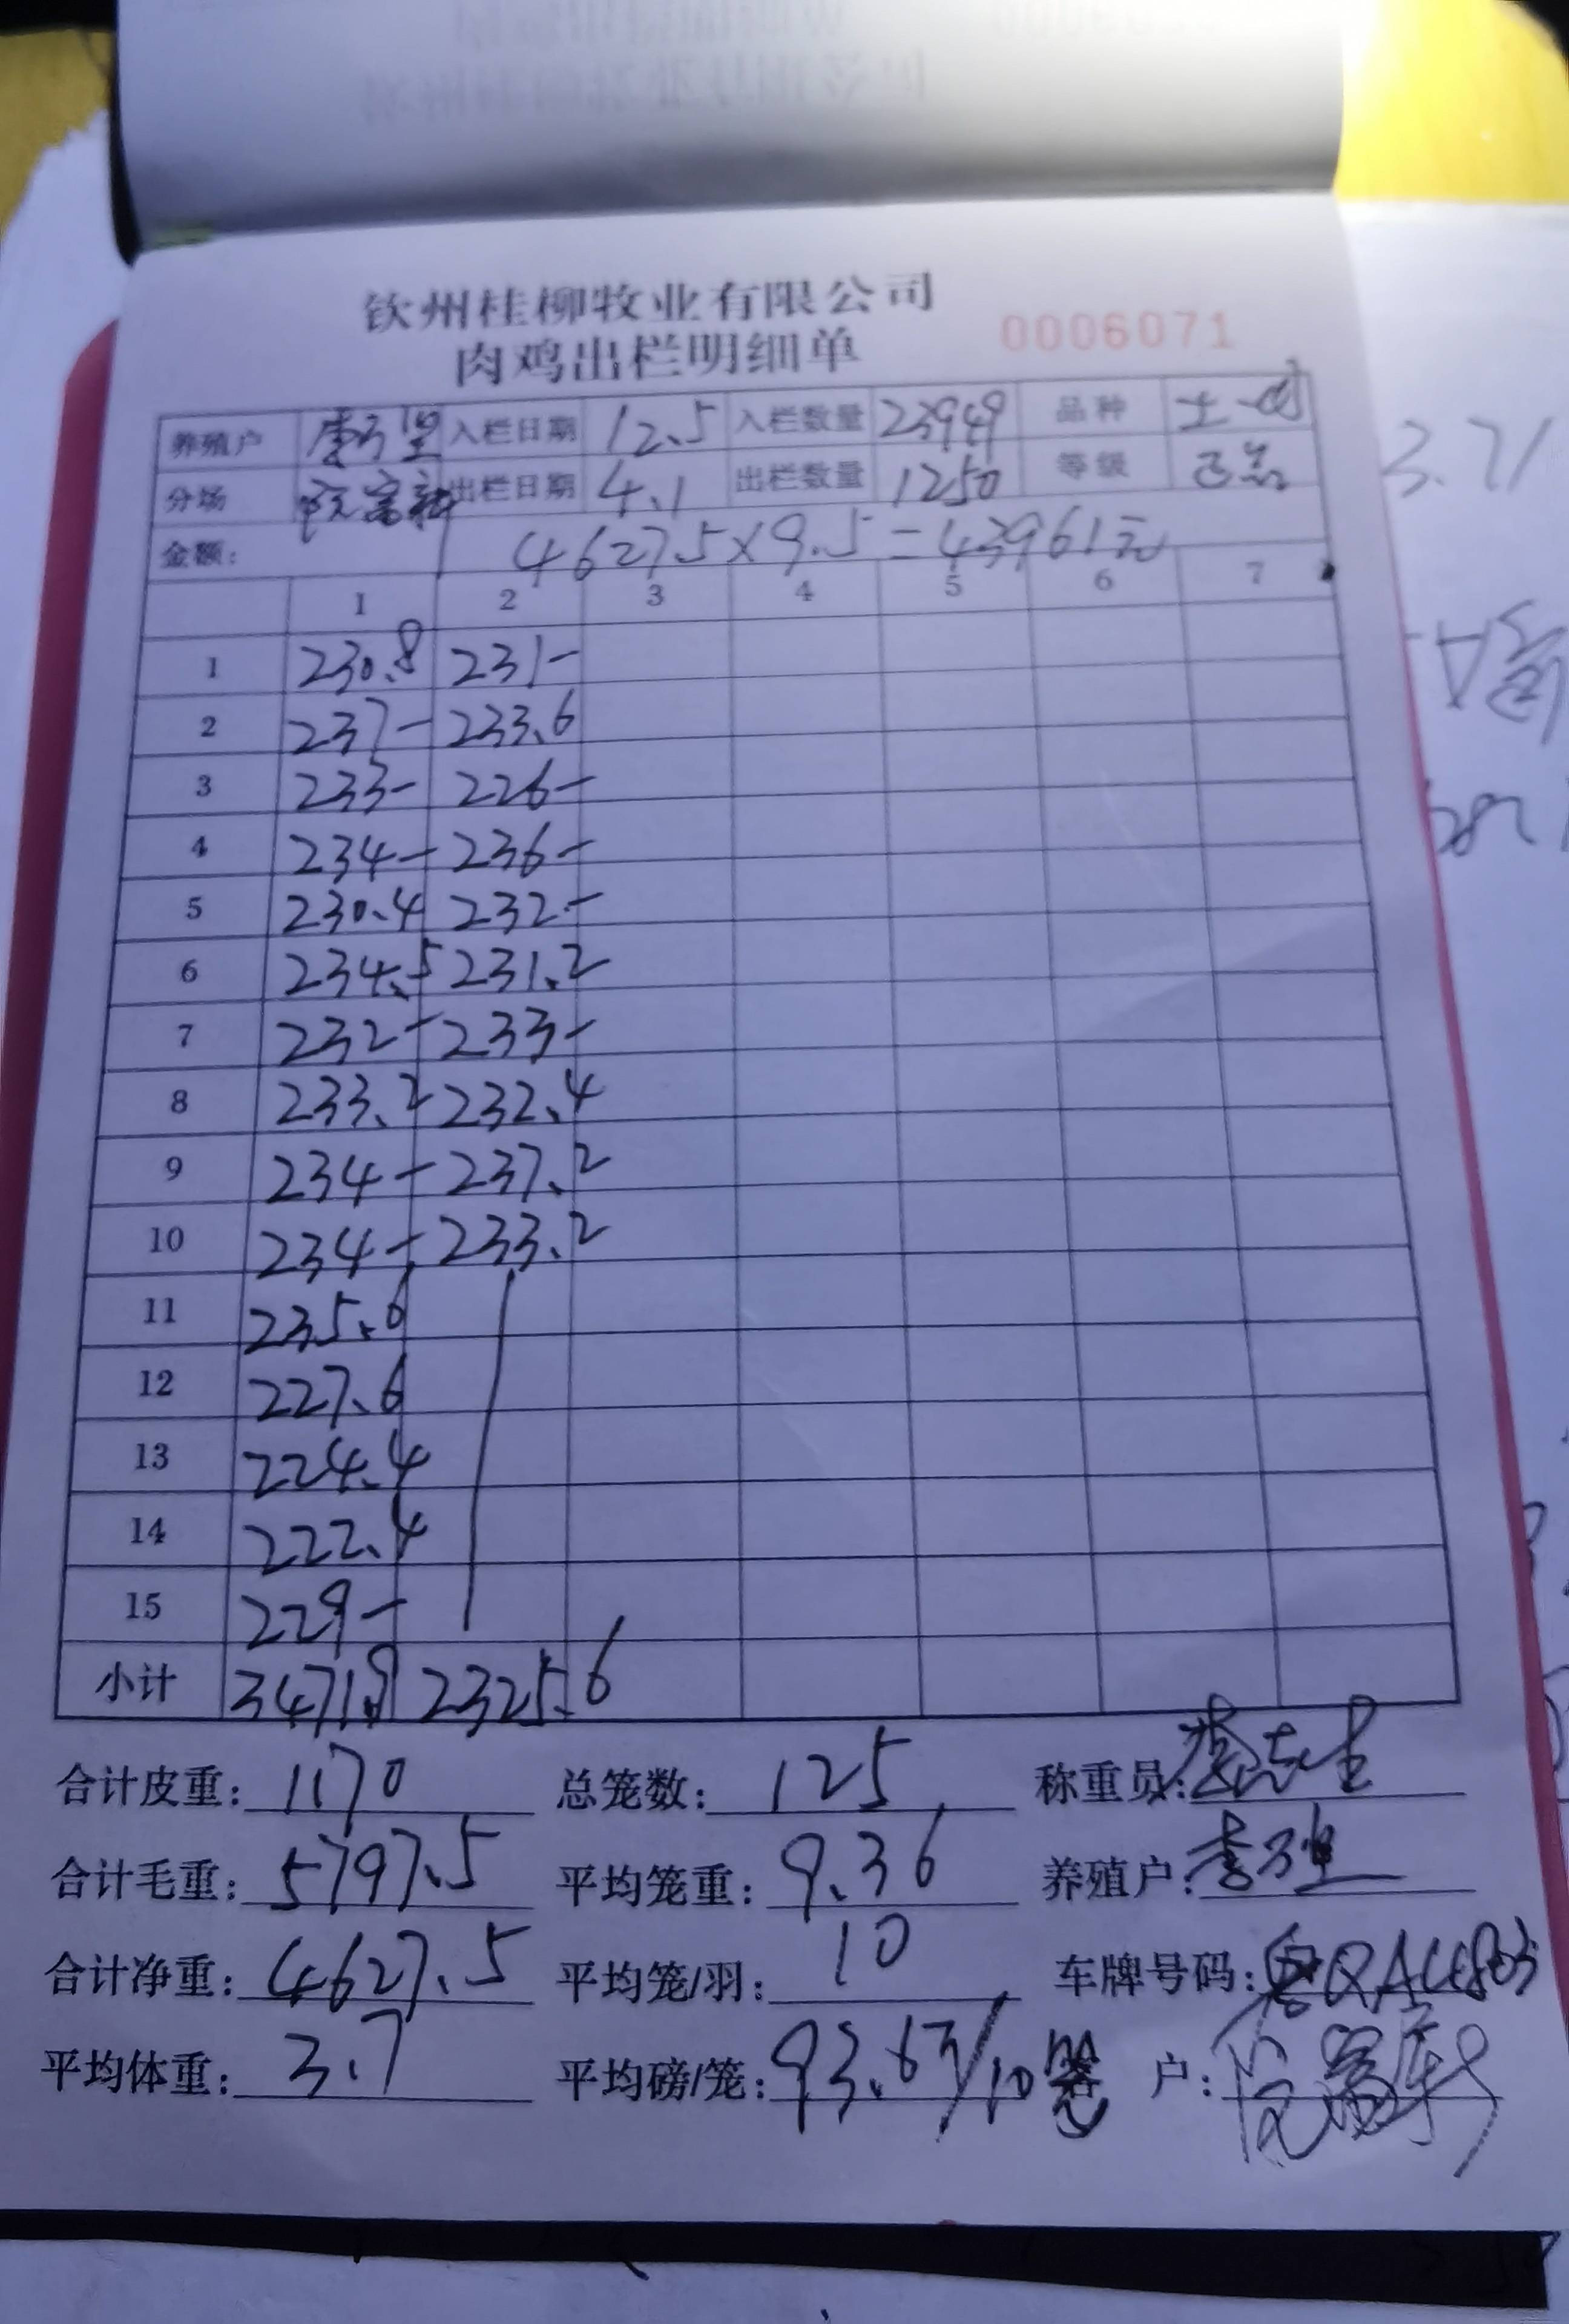 钦州桂柳牧业有限公司
肉鸡出栏明细单 0006071
养殖户 入栏日期 12.5 入栏数量 23949 品种 土一
分场 阮富新 出栏日期 4.1 出栏数量 1250 等级
金额: 4627.5×9.5=43961元
1 2 3 4 5 6 7
1 230.8 231-
2 237- 233.6
3 233- 226-
4 234- 236-
5 230.4 232-
6 234.5 231.2
7 232- 233-
8 233.2 232.4
9 234- 237.2
10 234- 233.2
11 235.6
12 227.6
13 224.4
14 222.4
15 229-
小计 3471.9 2325.6
合计皮重: 1170 总笼数: 125 称重员:
合计毛重: 5797.5 平均笼重: 9.36 养殖户:
合计净重: 4627.5 平均笼/羽: 10 车牌号码:
平均体重: 3.7 平均磅/笼: 93.63/10 客户: 阮富新
3.71